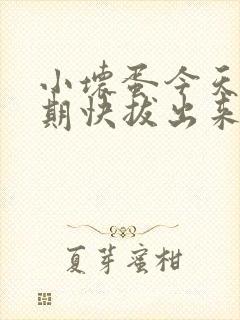 小壊蛋今天
期快拔出来
夏芽蜜柑